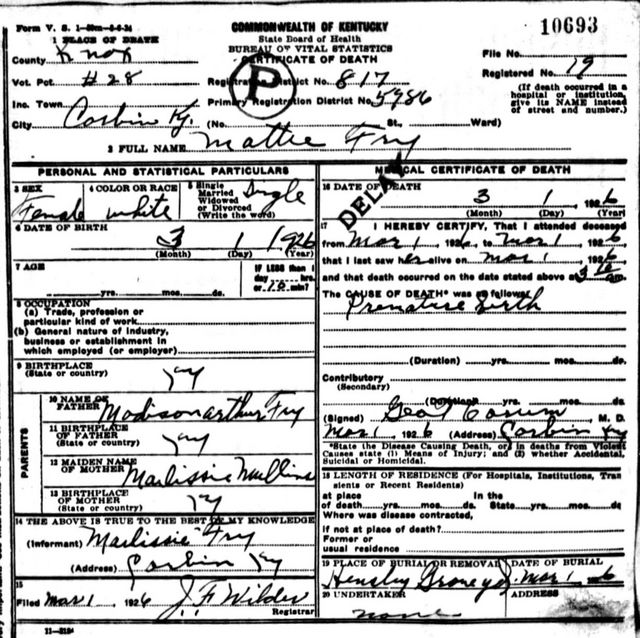 Form V. S. 1
COMMONWEALTH OF KENTUCKY
10693
1 PLACE OF DEATH
State Board of Health
BUREAU OF VITAL STATISTICS
CERTIFICATE OF DEATH
County Knox
File No.
Vot. Pct. #28
Registration District No. 817
Registered No. 19
P
Inc. Town
Primary Registration District No. 5986
(If death occurred in a hospital or institution, give its NAME instead of street and number.)
City Corbin Ky. (No. St. Ward)
2 FULL NAME Mattie Fry
PERSONAL AND STATISTICAL PARTICULARS
3 SEX Female
4 COLOR OR RACE white
5 Single Married Widowed or Divorced (Write the word) Single
6 DATE OF BIRTH 3 1 1926
(Month) (Day) (Year)
7 AGE
yrs. mos. ds.
IF LESS than 1 day hrs. or min?
8 OCCUPATION
(a) Trade, profession or particular kind of work
(b) General nature of industry, business or establishment in which employed (or employer)
9 BIRTHPLACE (State or country) Ky
PARENTS
10 NAME OF FATHER Madison arthur Fry
11 BIRTHPLACE OF FATHER (State or country) Ky
12 MAIDEN NAME OF MOTHER Marlissie Mullins
13 BIRTHPLACE OF MOTHER (State or country) Ky
14 THE ABOVE IS TRUE TO THE BEST OF MY KNOWLEDGE
(Informant) Marlissie Fry
(Address) Corbin Ky
15
Filed Mar 1 1926 J. F. Wilder
Registrar
11-3184
MEDICAL CERTIFICATE OF DEATH
DELAY
16 DATE OF DEATH 3 1 1926
(Month) (Day) (Year)
17 I HEREBY CERTIFY, That I attended deceased
from Mar 1 1926, to Mar 1 1926
that I last saw her alive on Mar 1 1926
and that death occurred on the date stated above at 3
The CAUSE OF DEATH* was as follows:
Premature Birth
(Duration) yrs. mos. ds.
Contributory
(Secondary)
(Duration) yrs. mos. ds.
(Signed) M. D.
Mar 1 1926 (Address) Corbin Ky
*State the Disease Causing Death, or, in deaths from Violent Causes state (1) Means of Injury; and (2) whether Accidental, Suicidal or Homicidal.
18 LENGTH OF RESIDENCE (For Hospitals, Institutions, Transients or Recent Residents)
at place of death yrs. mos. ds. In the State yrs. mos. ds.
Where was disease contracted,
if not at place of death?
Former or
usual residence
19 PLACE OF BURIAL OR REMOVAL Hensley Graveyd.
DATE OF BURIAL Mar 1
20 UNDERTAKER none
ADDRESS